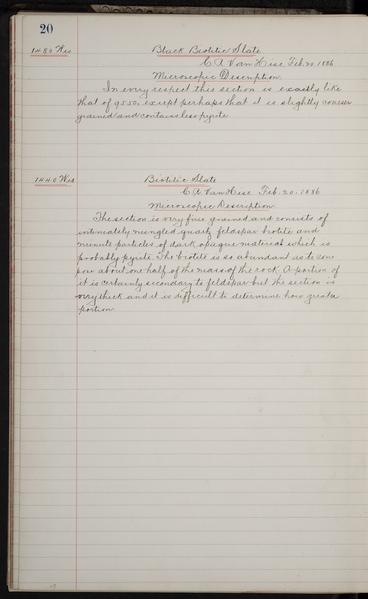 20
1480 Wis
Black Biotitic Slate
C. A. Van Hise Feb 20, 1886
Microscopic Description.
In every respect this section is exactly like
that of 9550, except perhaps that it is slightly coarser
grained and contains less pyrite
1440 Wis
Biotitic Slate
C. A. Van Hise Feb. 20. 1886
Microscopic Description
The section is very fine grained and consists of
intimately mingled quartz feldspar biotite and
minute particles of dark opaque material which is
probably pyrite. The biotite is so abundant as to com
pose about one half of the mass of the rock. A portion of
it is certainly secondary to feldspar but the section is
very thick and it is difficult to determine how great a
portion